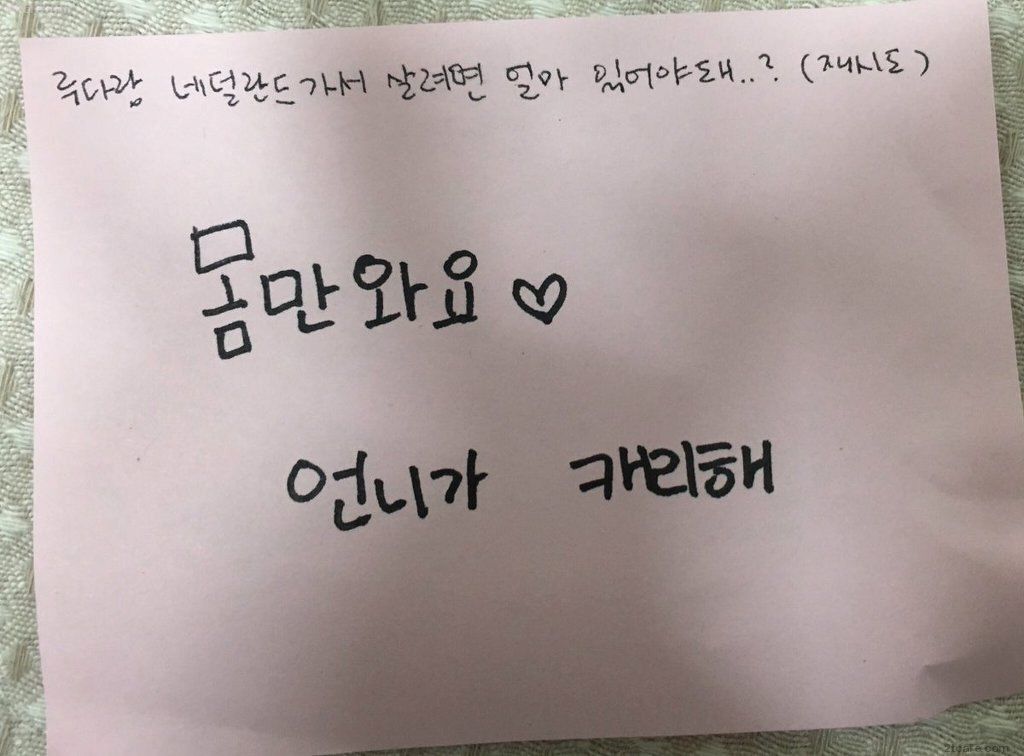 루다랑 네덜란드가서 살려면 얼마 있어야돼..? (재시도)
몸만와요♡
언니가 캐리해
2tcafe.com